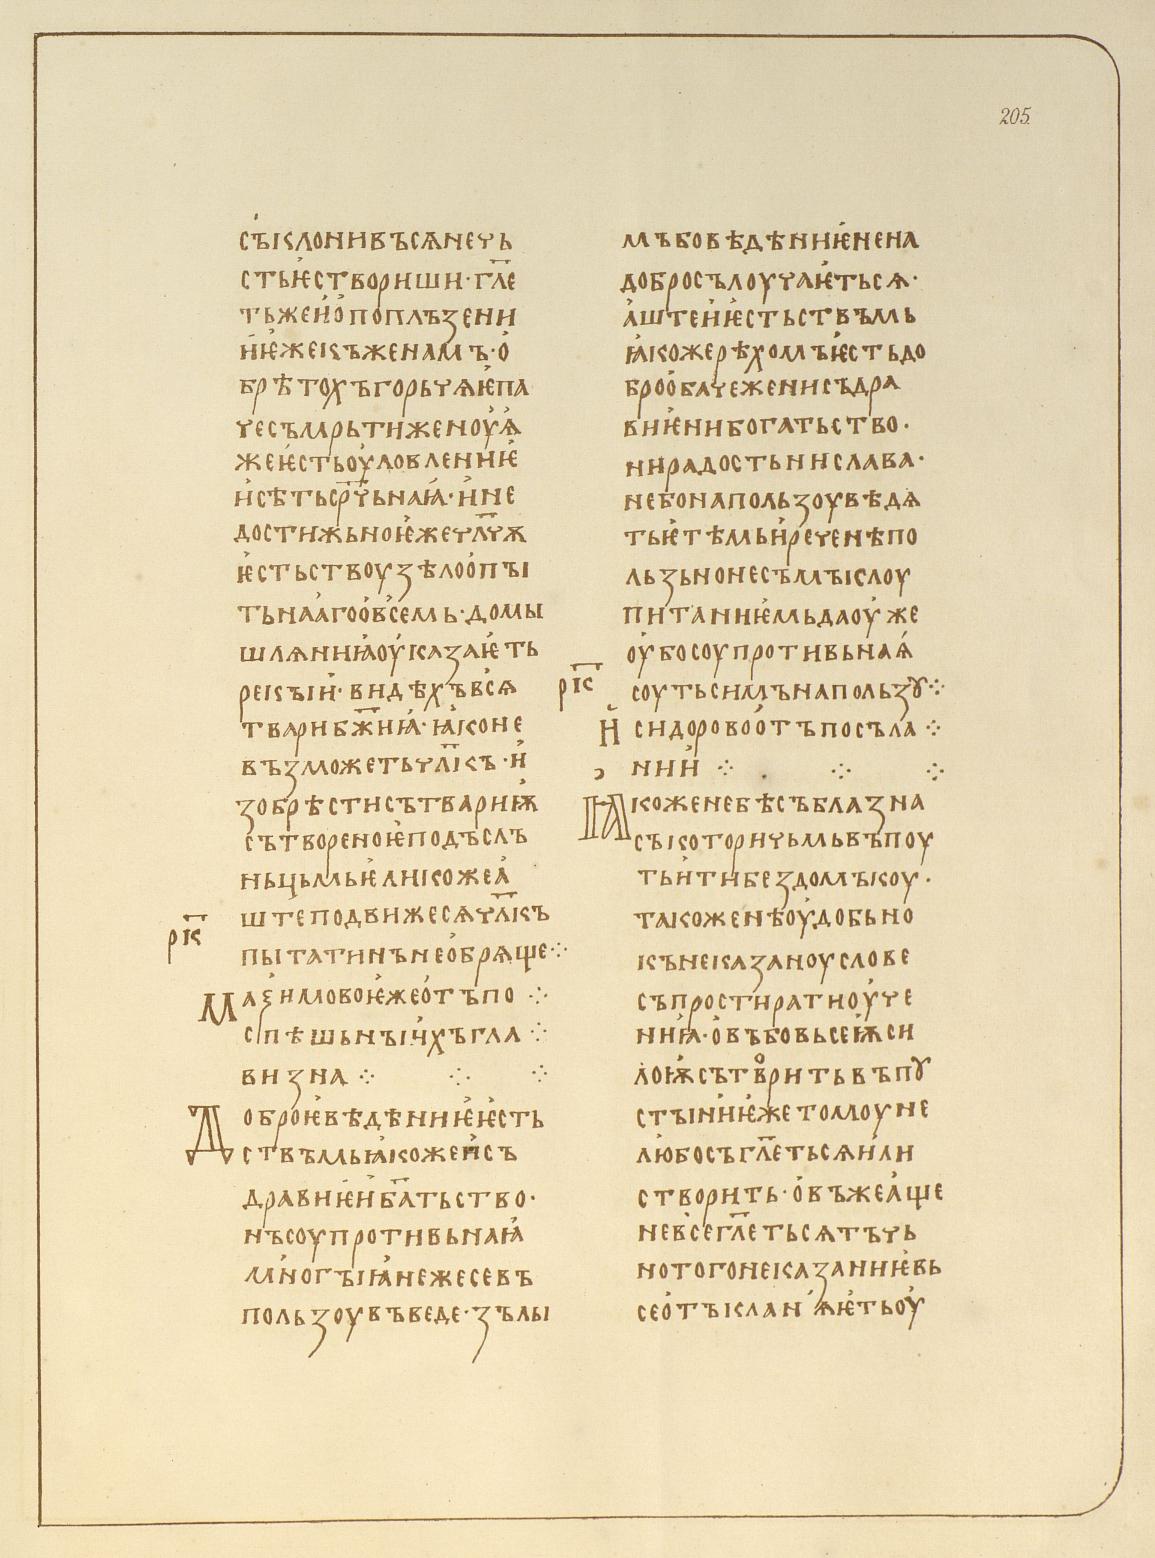 205
съклонивъсѧнечь
стьѥствориши·гл҃е
тьжеиопоплъзени
иѥжекъженамъ·о
брѣтохъгорьчѫѥпа
чесъмрьтиженоуѭ
жеѥстьоуловлениѥ
исѣтьср҃чьнаꙗ·ине
достижьноѥжечл҃чѫ
ѥстьствоузѣлоопъı
тьнааговьсемь·домы
шлѧниꙗоуказаѥть
рекъıи·видѣхъвсѧ
тварибж҃иꙗ·ꙗконе
възможетьчл҃къ·и
зобрѣстисътвариѭ
сътвореноѥподъслъ
ньцьмьѥликожеа
штеподвижесѧчл҃къ
рк҃
пытатинънеобрѧще
маѯимовоѥжеотъпо
спѣшьнъıихъгла
визна
доброѥвѣдѣниѥѥсть
ствъмьꙗкожеисъ
дравиѥиба҃тьство·
нъсоупротивьнаꙗ
многъıꙗнежесевъ
пользоувъведе·зълы
мъбовѣдѣниѥнена
добросълоучаѥтьсѧ·
аштеиѥстьствъмь
ꙗкожерѣхомъѥстьдо
броοбачеженисъдра
виѥнибогатьство·
нирадостьнислава·
небонапользоувѣдѧ
тьѥтѣмьиреченѣпо
льзьнонесъмъıслоу
питаниѥмьдаоуже
оубосоупротивьнаꙗ
рк҃
соутьсимънапользꙋ
исидоровоотъпосъла
нии
ꙗкоженебѣсъблазна
съкоторичьмьвъпоу
тьитибездомъкоу·
такоженѣоудобьно
кънеказаноуслове
съпростиратиоуче
ниꙗ·овъбовьсеѭси
лоѭсътворитьвъпꙋ
стъıниѥжетомоуне
любосъгл҃етьсѧили
створить·овъжеаще
невсегл҃етьсѧтъчь
нотогонеказаниѥвь
сеотъклан҄ѧѥтьоу